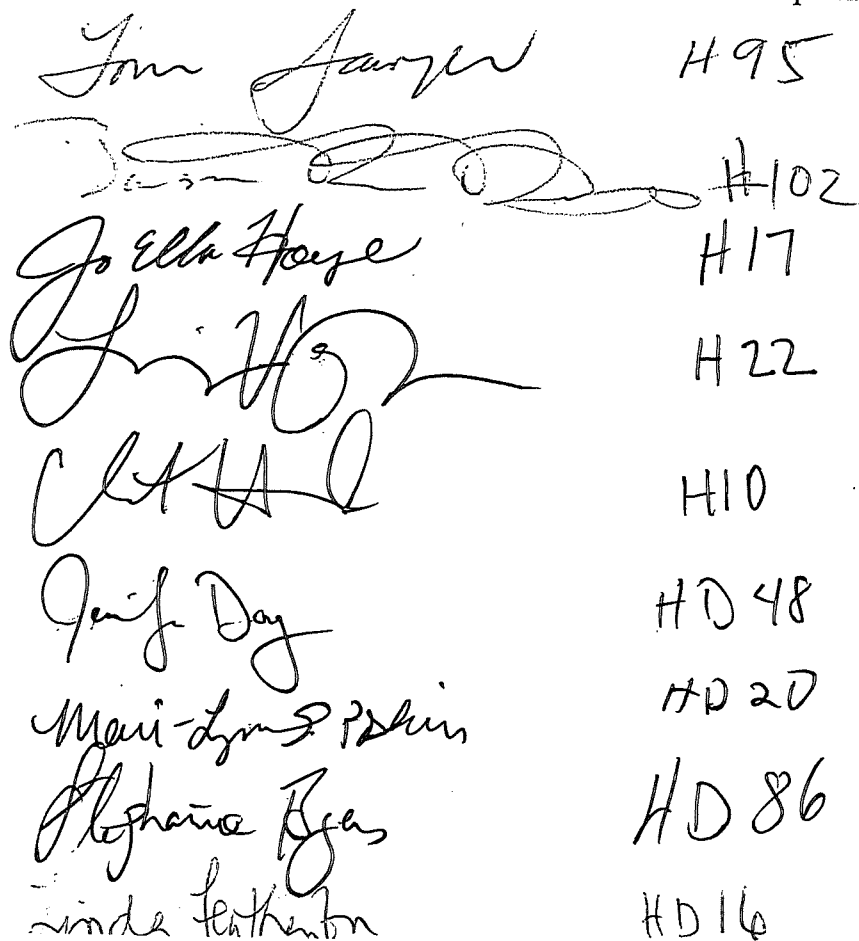 Tom Sawyer H95
Jason H102
Jo Ella Hoye H17
H22
H10
Day HD 48
Mari-Lynn Poskin HD 20
Stephanie Byers HD 86
Linda Featherston HD 16